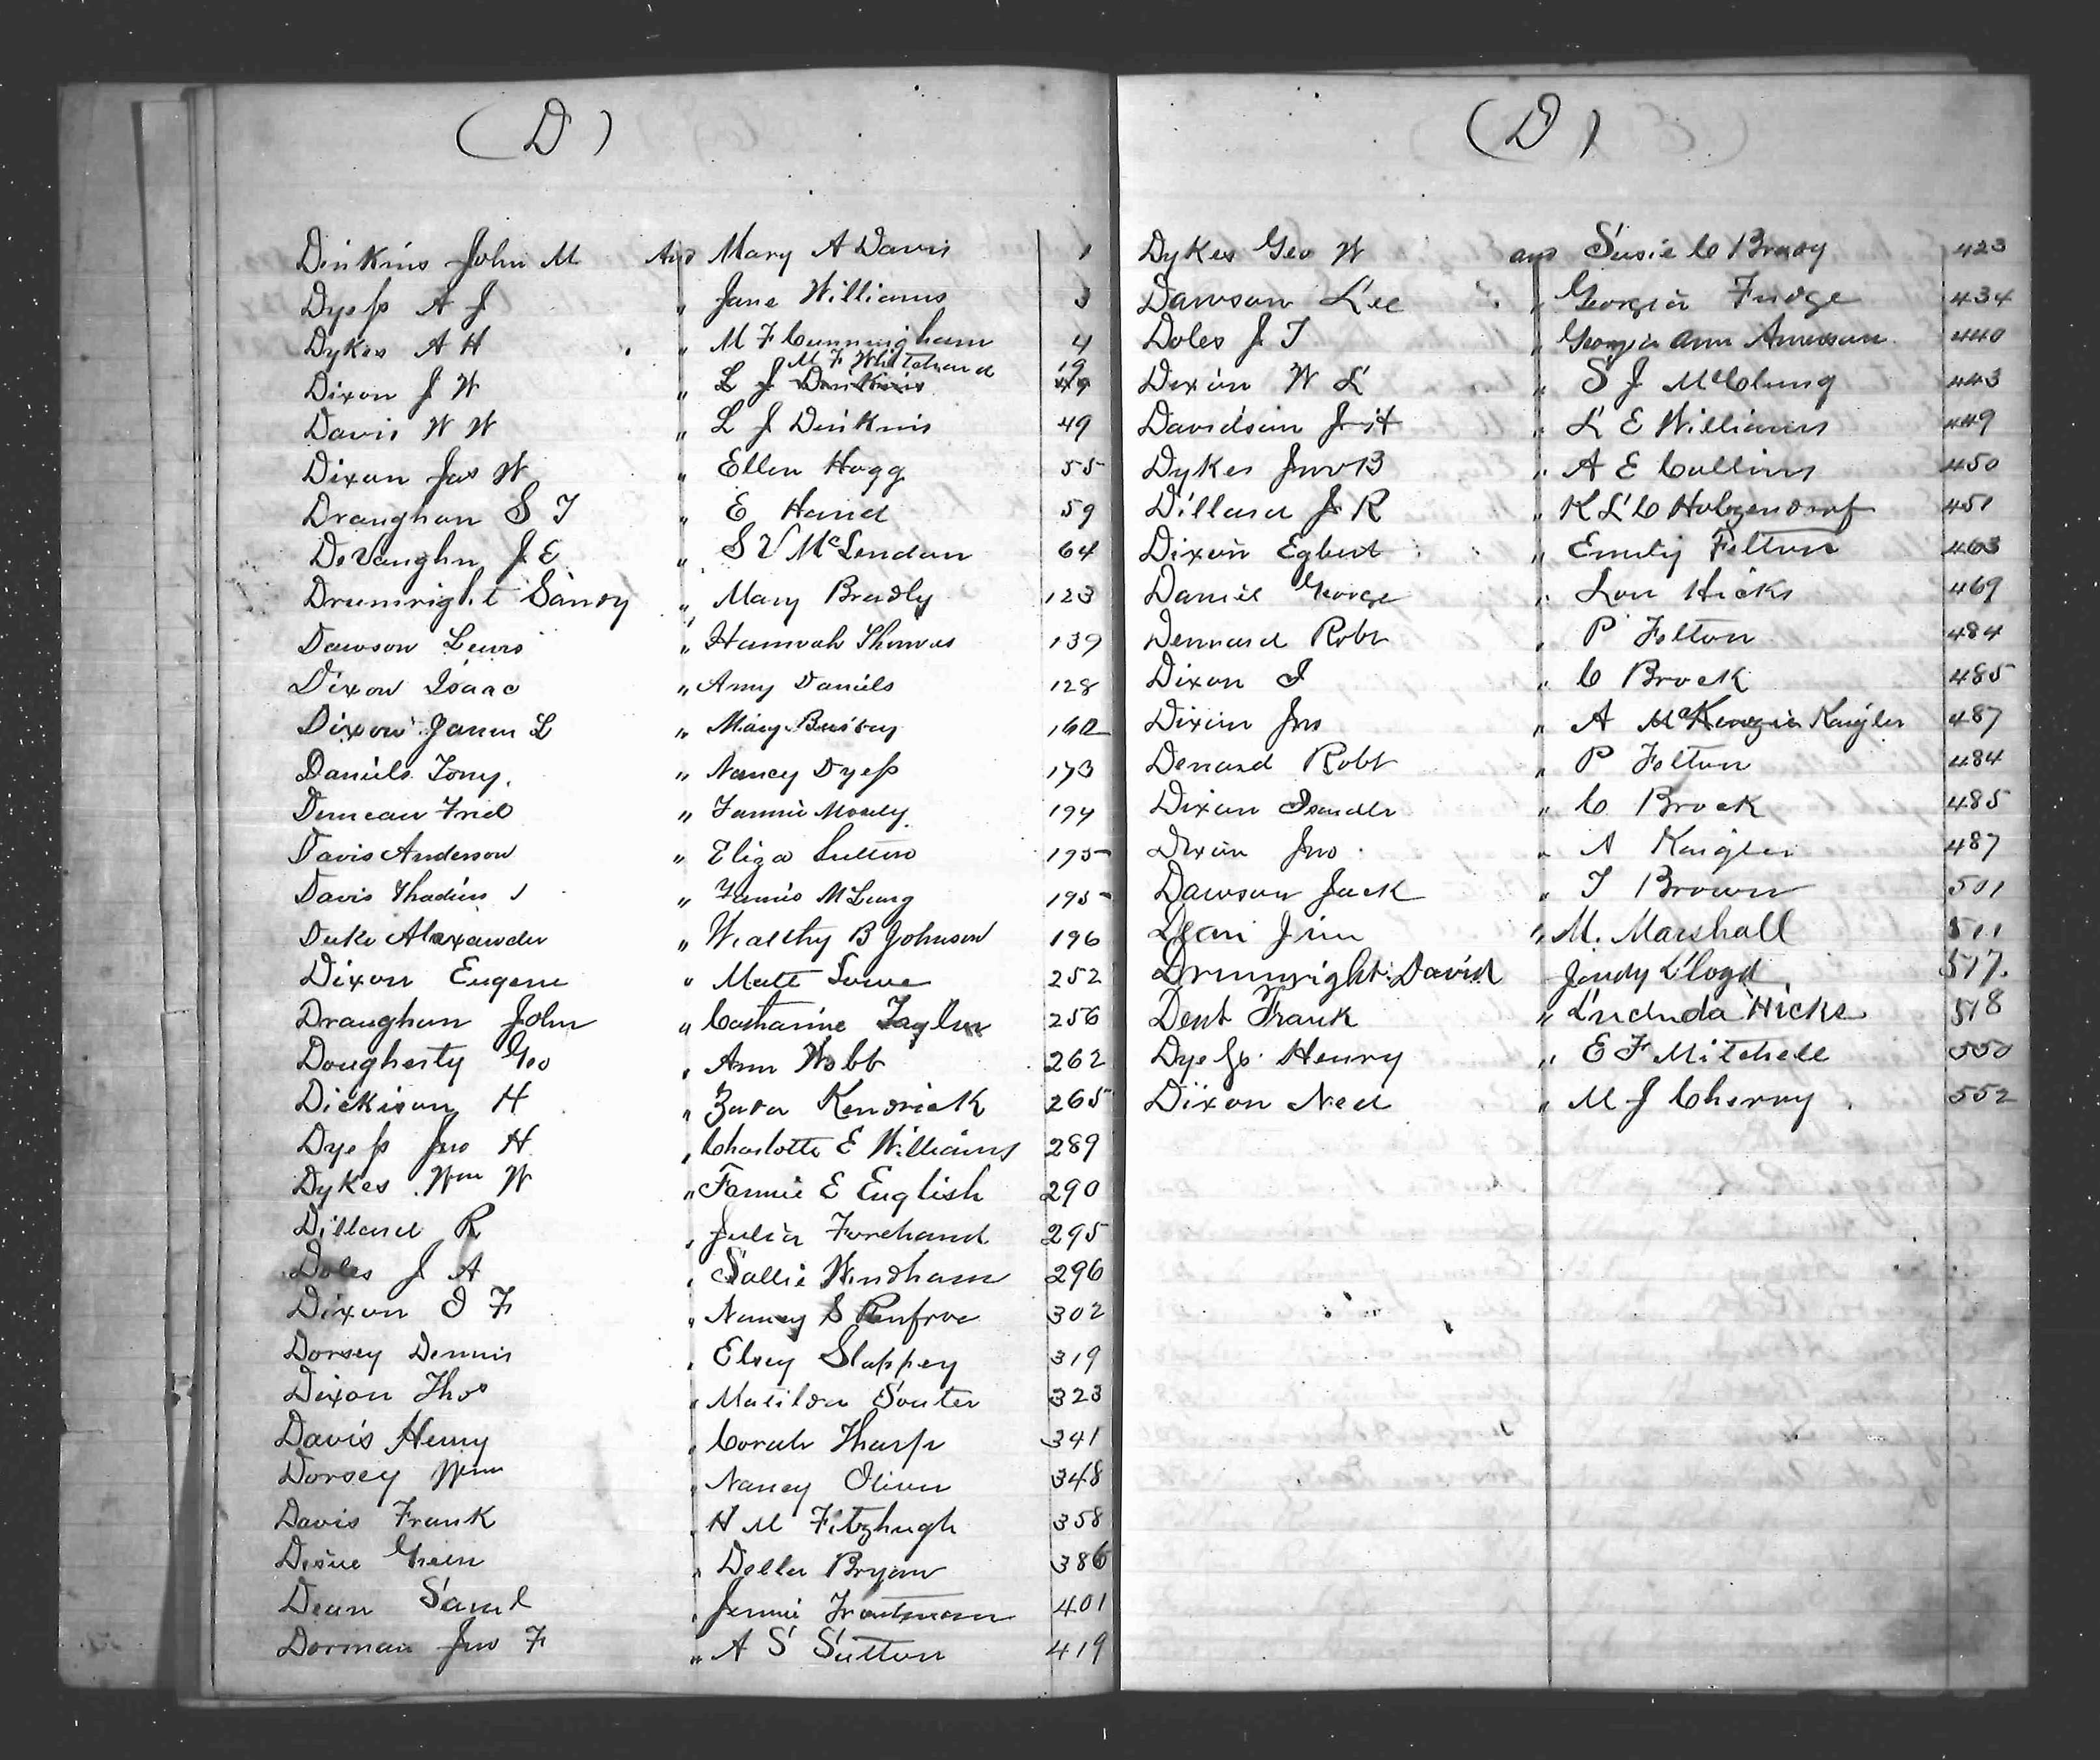 (D)
Dinkins John M And Mary A Davis 1
Dyess A J " Jane Williams 3
Dykes A H " M F Cunningham 4
M F Whitehead 19
Dixon J W " L J Dinkins 49
Davis W W " L J Dinkins 49
Dixon Jas W " Ellen Hogg 55
Draughon S T " E Hand 59
DeVaughn J E " S V McLendon 64
Drumright Sandy " Mary Bradly 123
Dawson Lewis " Hannah Thomas 139
Dixon Isaac " Amy Daniels 128
Dixon James L " Mary Busbey 162
Daniels Tony " Nancy Dyess 173
Duncan Fred " Fannie Mosely 194
Davis Anderson " Eliza Sutton 195
Davis Thadius J " Fannie McLung 195
Duke Alexander " Wealthy B Johnson 196
Dixon Eugene " Matt Lowe 252
Draughon John " Catharine Taylor 256
Dougherty Geo " Ann Webb 262
Dickison H " Zada Kendrick 265
Dyess Jno H " Charlotte E Williams 289
Dykes Wm W " Fannie E English 290
Dillard R " Julia Forehand 295
Doles J A " Sallie Windham 296
Dixon I F " Nancy S Renfroe 302
Dorsey Dennis " Elsey Slappey 319
Dixon Thos " Matilda Souter 323
Davis Henry " Corah Tharp 341
Dorsey Wm " Nancy Oliver 348
Davis Frank " H M Fitzhugh 358
Green " Della Bryan 386
Dean Saml " Jennie Troutman 401
Dorman Jno F " A S Sutton 419
(D)
Dykes Geo W and Susie C Brady 423
Dawson Lee " Georgia Fudge 434
Doles J T " Georgia Ann Amerson 440
Dixon W L " S J McClung 443
Davidson " L E Williams 449
Dykes Jno B " A E Collins 450
Dillard J R " K L C Holtzendorf 451
Dixon Egbert " Emily Felton 463
Daniel George " Lou Hicks 469
Dennard Robt " P Felton 484
Dixon I " C Brock 485
Dixon Jno " A McKenzie Kaigler 487
Denard Robt " P Felton 484
Dixon " C Brock 485
Dixon Jno " A Kaigler 487
Dawson Jack " T Brown 501
Dean Jim " M. Marshall 511
Drumright David Jindy Lloyd 517.
Dent Frank " Lucinda Hicks 518
Dyess Henry " E F Mitchell 550
Dixon Ned " M J Cherry 552